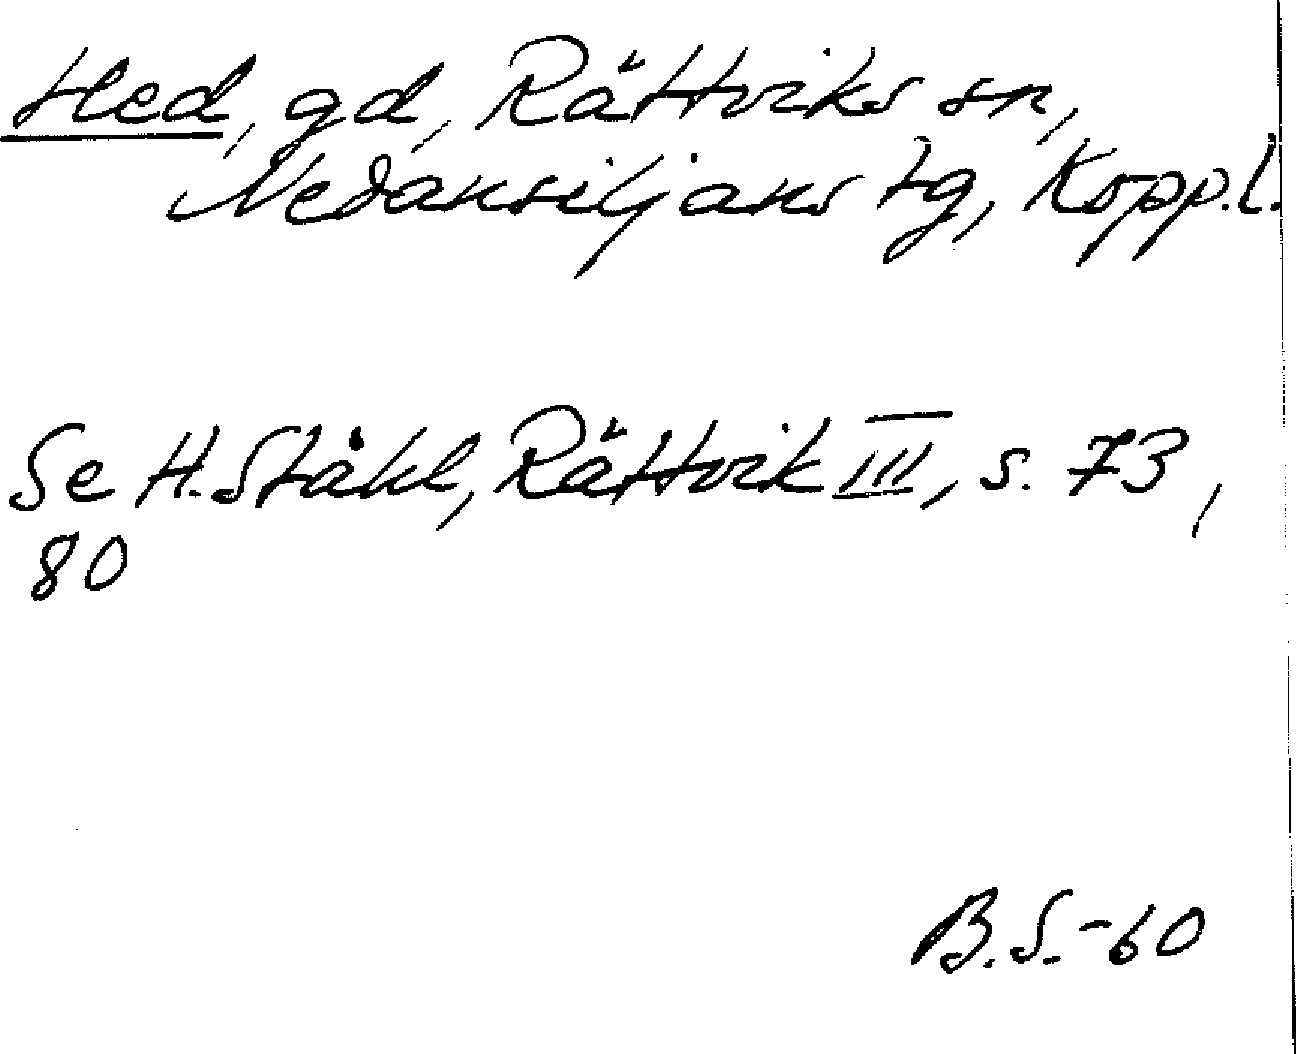 Hed, gd, Rättviks sn,
Nedansiljans tg, Kopp.l.
Se H. Ståhl, Rättvik III, s. 73,
80
B.S.-60